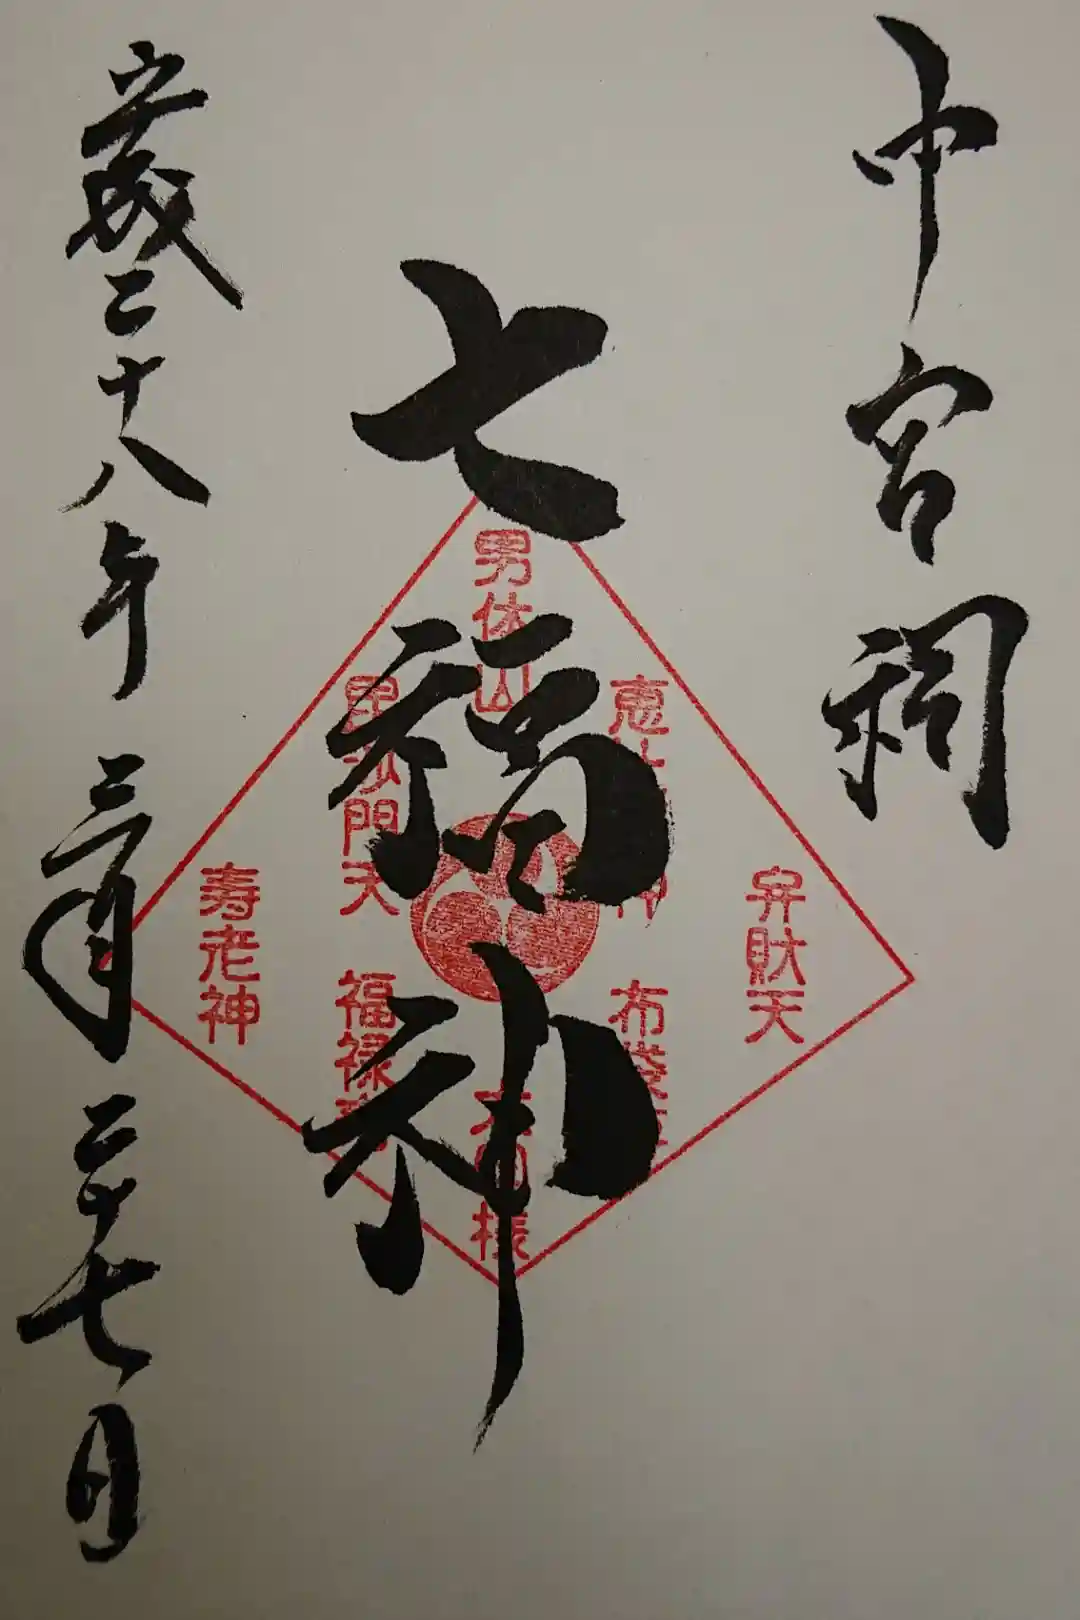 中宮祠
七福神
男体山
弁財天
恵比 神
布袋
大国様
毘沙門天
福禄寿
寿老神
平成二十八年三月二十七日